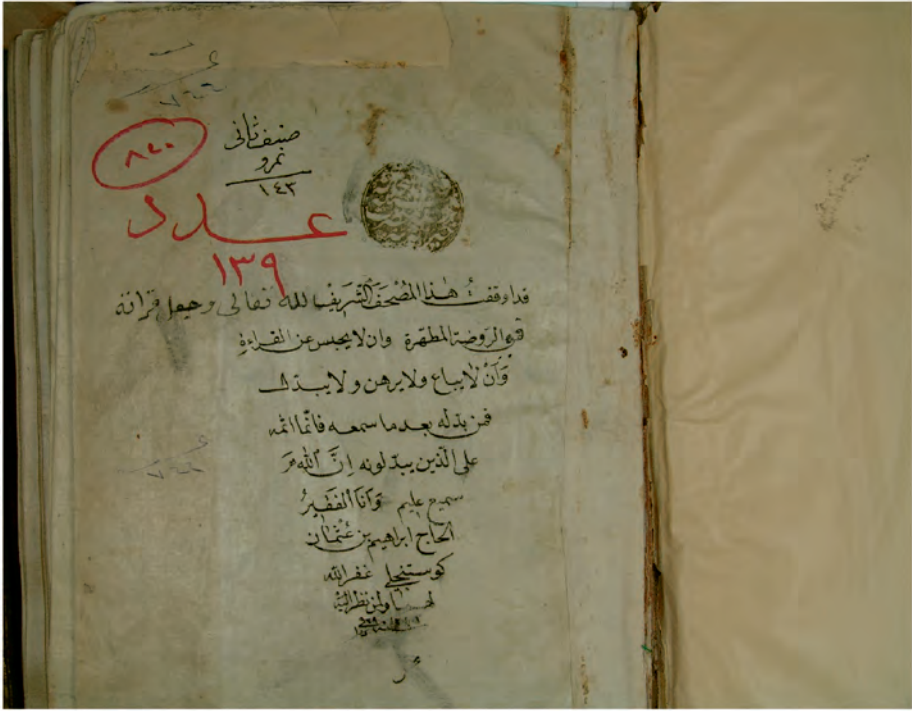 صنف ثانى
نمرو
١٤٣
٨٤٠
عدد
١٣٩
قد اوقفت هذا المصحف الشريف لله تعالى وجعل قرانه
فى الروضة المطهرة وان لا يحبس عن القراءة
وَاَنْ لا يباع ولا يرهن ولا يبدل
فمن بدله بعد ما سمعه فانما اثمه
على الذين يبدلونه اِنَّ الله
سميع عليم وَاَنَا الفَقيرُ
الحاج ابراهيم بن عثمان
كوستنجلى غفر الله
لهما ولمن نظر اليه